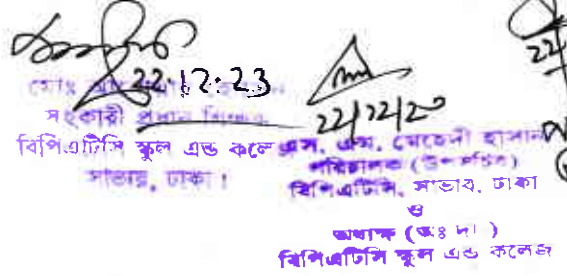 22.12.23
মোঃ
সহকারী প্রধান শিক্ষক
বিপিএটিসি স্কুল এন্ড কলেজ
সাভার, ঢাকা।
22/12/23
এস, এম, মেহেদী হাসান
পরিচালক (উপসচিব)
বিপিএটিসি, সাভার, ঢাকা
ও
অধ্যক্ষ (অঃ দাঃ)
বিপিএটিসি স্কুল এন্ড কলেজ
22